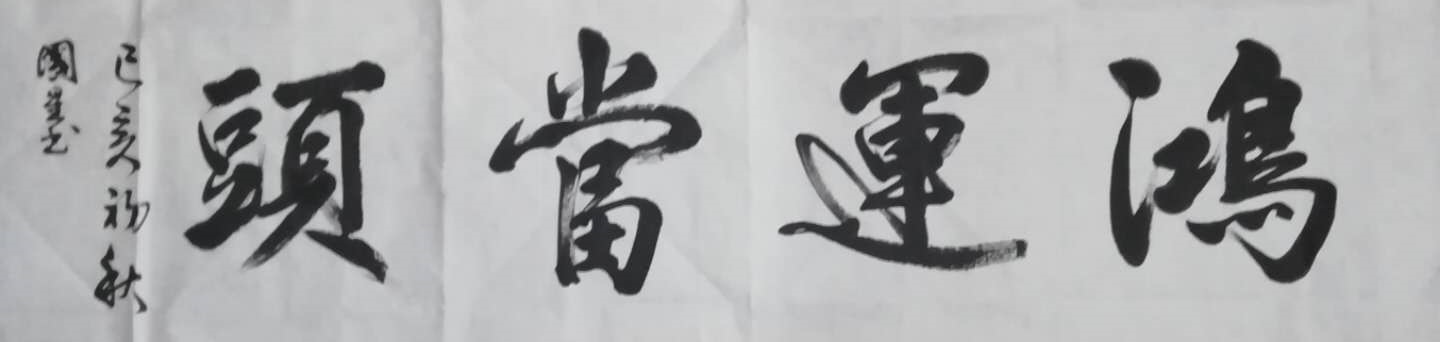 鴻運當頭
己亥初秋
國